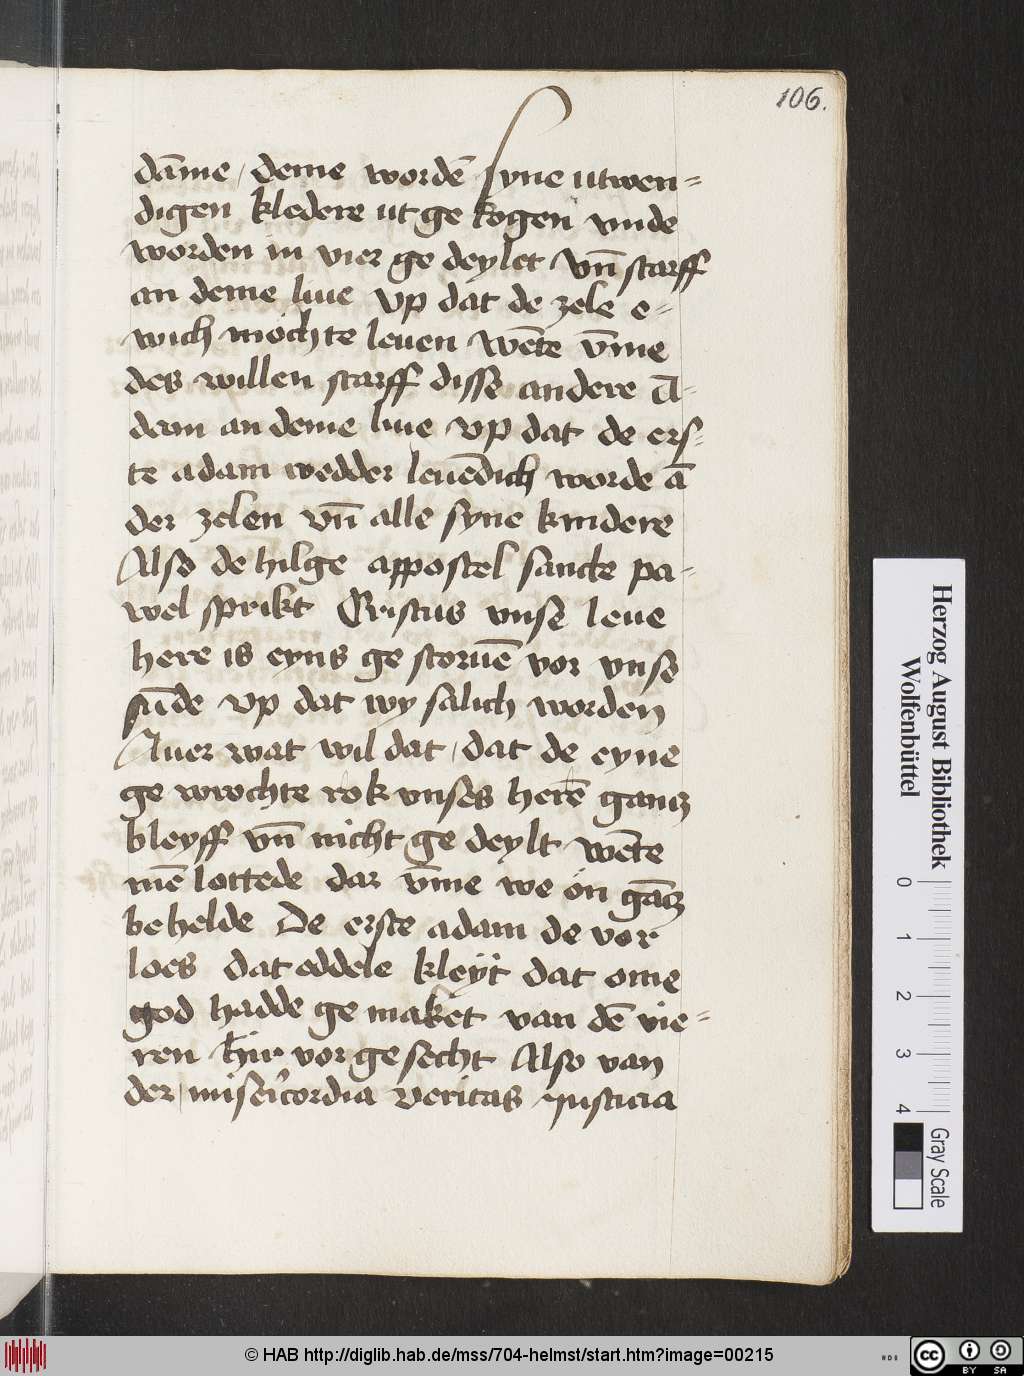 106.
dāme, deme wordē syne utwen=
digen kledere ut ge togen vnde
worden in vier ge deylet Vn̄ starff
an deme liue vp dat de zele e=
wich mochte leuen Wēte v̄me
des willen starff disse andere A=
dam an deme liue vp dat de ers=
te adam wedder leuēdich worde ā
der zelen vn̄ alle syne kindere
Also de hilge appostel sancte pa=
wel sprikt Cristus vnse leue
here is eyns ge storuē vor vnse
sūde vp dat wy salich worden
Auer wat wil dat, dat de eyne
ge wrochte rok vnses herē gantz
bleyff vn̄ nicht ge deylt wēte
mē lottede dar v̄me we on gātz
be helde De erste adam de vor
loes dat eddele kleyt dat ome
god hadde ge maket van dē vie=
ren hir vor ge secht Also van
der misericordia veritas Justicia
Herzog August Bibliothek
Wolfenbüttel
0 1 2 3 4
Gray Scale
© HAB http://diglib.hab.de/mss/704-helmst/start.htm?image=00215
HAB
CC BY SA